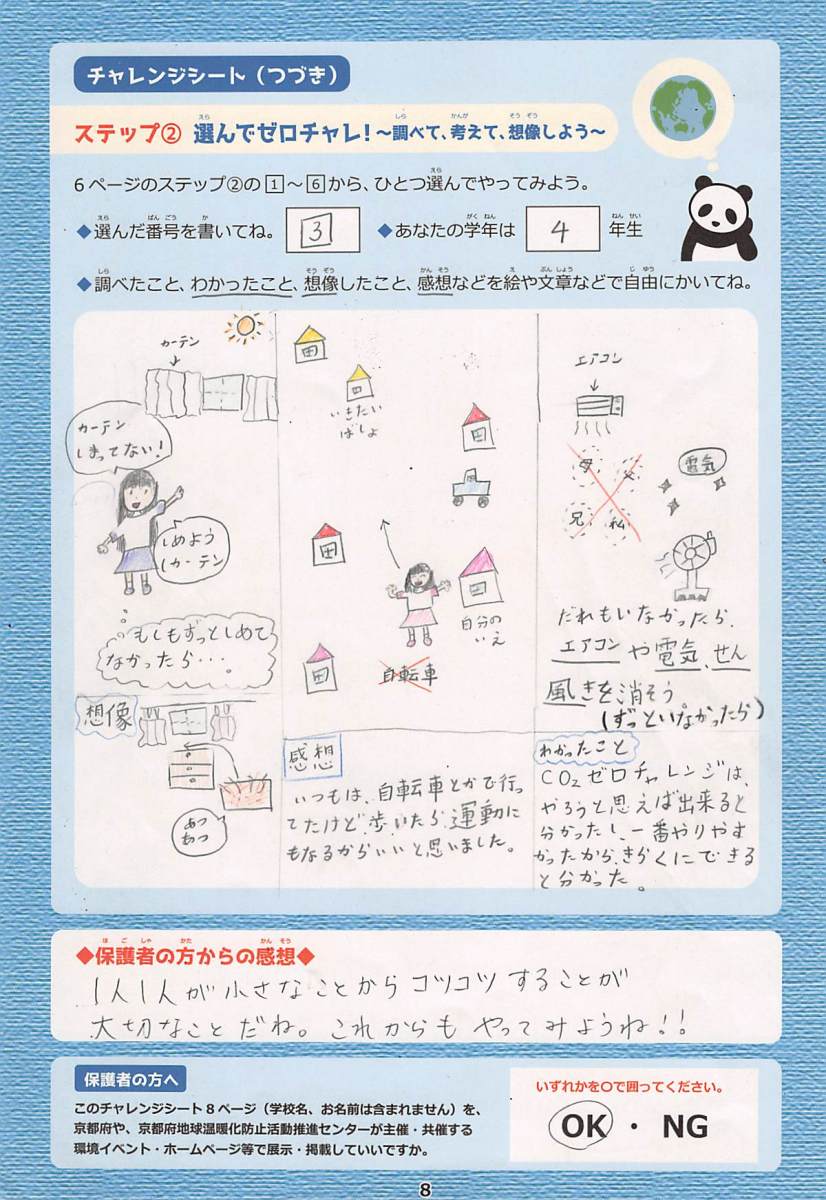 チャレンジシート（つづき）
ステップ② 選んでゼロチャレ！～調べて、考えて、想像しよう～
6ページのステップ②の1～6から、ひとつ選んでやってみよう。
◆選んだ番号を書いてね。 3 ◆あなたの学年は 4 年生
◆調べたこと、わかったこと、想像したこと、感想などを絵や文章などで自由にかいてね。
カーテン
カーテン
しまってない！
しめよう
カーテン
もしもずっとしめて
なかったら・・・。
想像
あつ
あつ
いきたい
ばしょ
自分の
いえ
自転車
感想
いつもは、自転車とかで行っ
てたけど歩いたら運動に
もなるからいいと思いました。
エアコン
母 父
兄 私
電気
だれもいなかったら、
エアコンや電気、せん
風きを消そう
(ずっといなかったら)
わかったこと
CO₂ゼロチャレンジは、
やろうと思えば出来ると
分かったし、一番やりやす
かったから、きらくにできる
と分かった。
◆保護者の方からの感想◆
1人1人が小さなことからコツコツすることが
大切なことだね。これからもやってみようね!!
保護者の方へ
このチャレンジシート8ページ（学校名、お名前は含まれません）を、
京都府や、京都府地球温暖化防止活動推進センターが主催・共催する
環境イベント・ホームページ等で展示・掲載していいですか。
いずれかを〇で囲ってください。
OK ・ NG
8